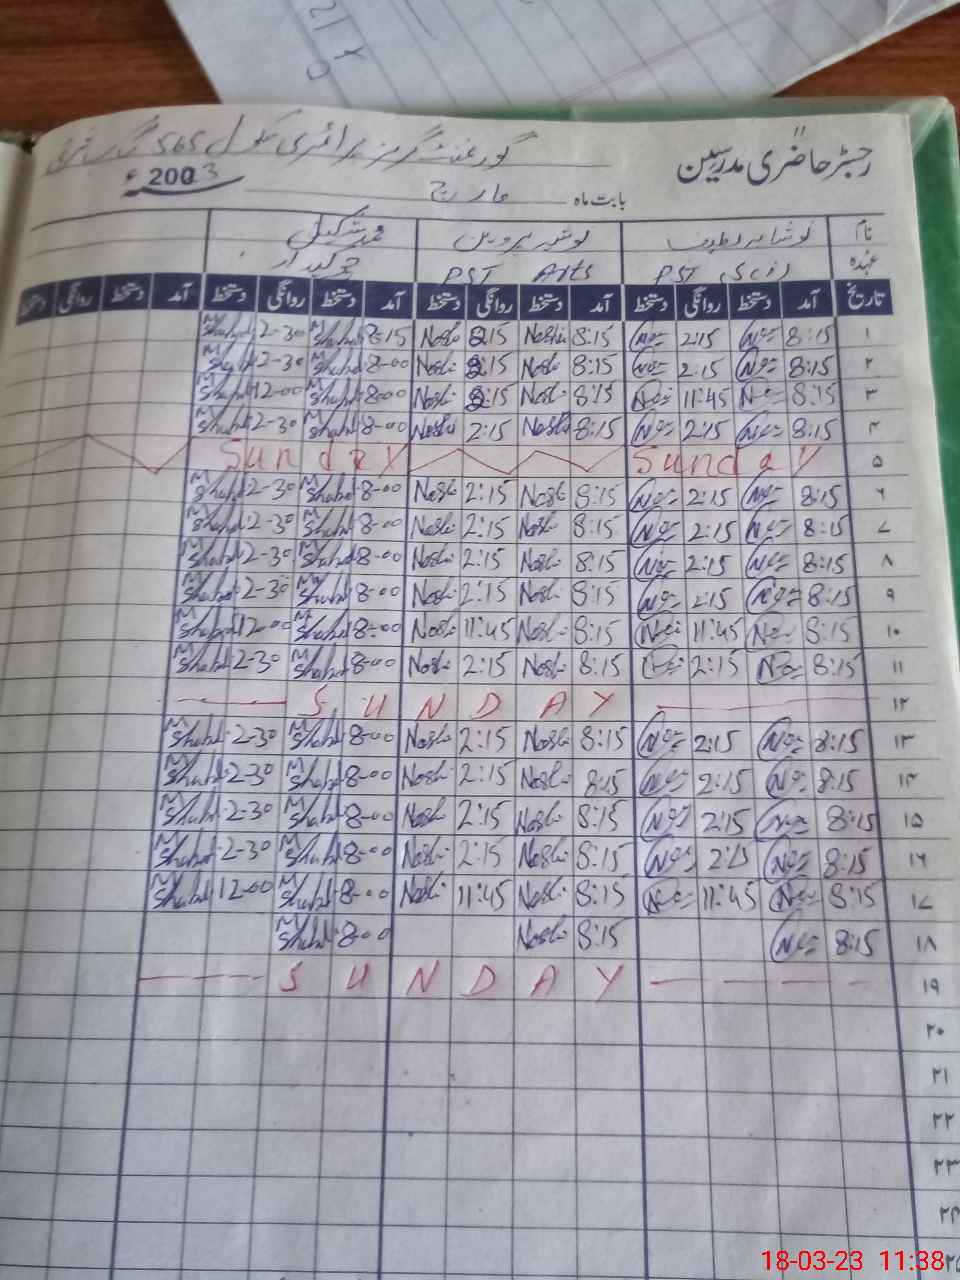 رجسٹر حاضری مدرسین گورنمنٹ گرلز پرائمری سکول 565 گ ب
بابت ماہ مارچ 2003ء
نام
عہدہ PST (Sci) PST Arts چوکیدار
تاریخ آمد دستخط روانگی دستخط آمد دستخط روانگی دستخط آمد دستخط روانگی دستخط آمد دستخط روانگی دستخط
۱ 8:15 2:15 8:15 Noshi 2:15 Noshi 8-15 M Shahd 2-30 M Shahd
۲ 8:15 2:15 8:15 Noshi 2:15 Noshi 8-00 M Shahd 2-30 M Shahd
۳ 8:15 11:45 8:15 Noshi 2:15 Noshi 8-00 M Shahd 12-00 M Shahd
۴ 8:15 2:15 8:15 Noshi 2:15 Noshi 8-00 M Shahd 2-30 M Shahd
۵ Sunday Sunday
۶ 8:15 2:15 8:15 Noshi 2:15 Noshi 8-00 M Shahd 2-30 M Shahd
۷ 8:15 2:15 8:15 Noshi 2:15 Noshi 8-00 M Shahd 2-30 M Shahd
۸ 8:15 2:15 8:15 Noshi 2:15 Noshi 8-00 M Shahd 2-30 M Shahd
۹ 8:15 2:15 8:15 Noshi 2:15 Noshi 8-00 M Shahd 2-30 M Shahd
۱۰ 8:15 11:45 8:15 Noshi 11:45 Noshi 8-00 M Shahd 12-00 M Shahd
۱۱ 8:15 2:15 8:15 Noshi 2:15 Noshi 8-00 M Shahd 2-30 M Shahd
۱۲ SUNDAY
۱۳ 8:15 2:15 8:15 Noshi 2:15 Noshi 8-00 M Shahd 2-30 M Shahd
۱۴ 8:15 2:15 8:15 Noshi 2:15 Noshi 8-00 M Shahd 2-30 M Shahd
۱۵ 8:15 2:15 8:15 Noshi 2:15 Noshi 8-00 M Shahd 2-30 M Shahd
۱۶ 8:15 2:15 8:15 Noshi 2:15 Noshi 8-00 M Shahd 2-30 M Shahd
۱۷ 8:15 11:45 8:15 Noshi 11:45 Noshi 8-00 M Shahd 12-00 M Shahd
۱۸ 8:15 8:15 Noshi 8-00 M Shahd
۱۹ SUNDAY
۲۰
۲۱
۲۲
۲۳
۲۴
۲۵
18-03-23 11:38